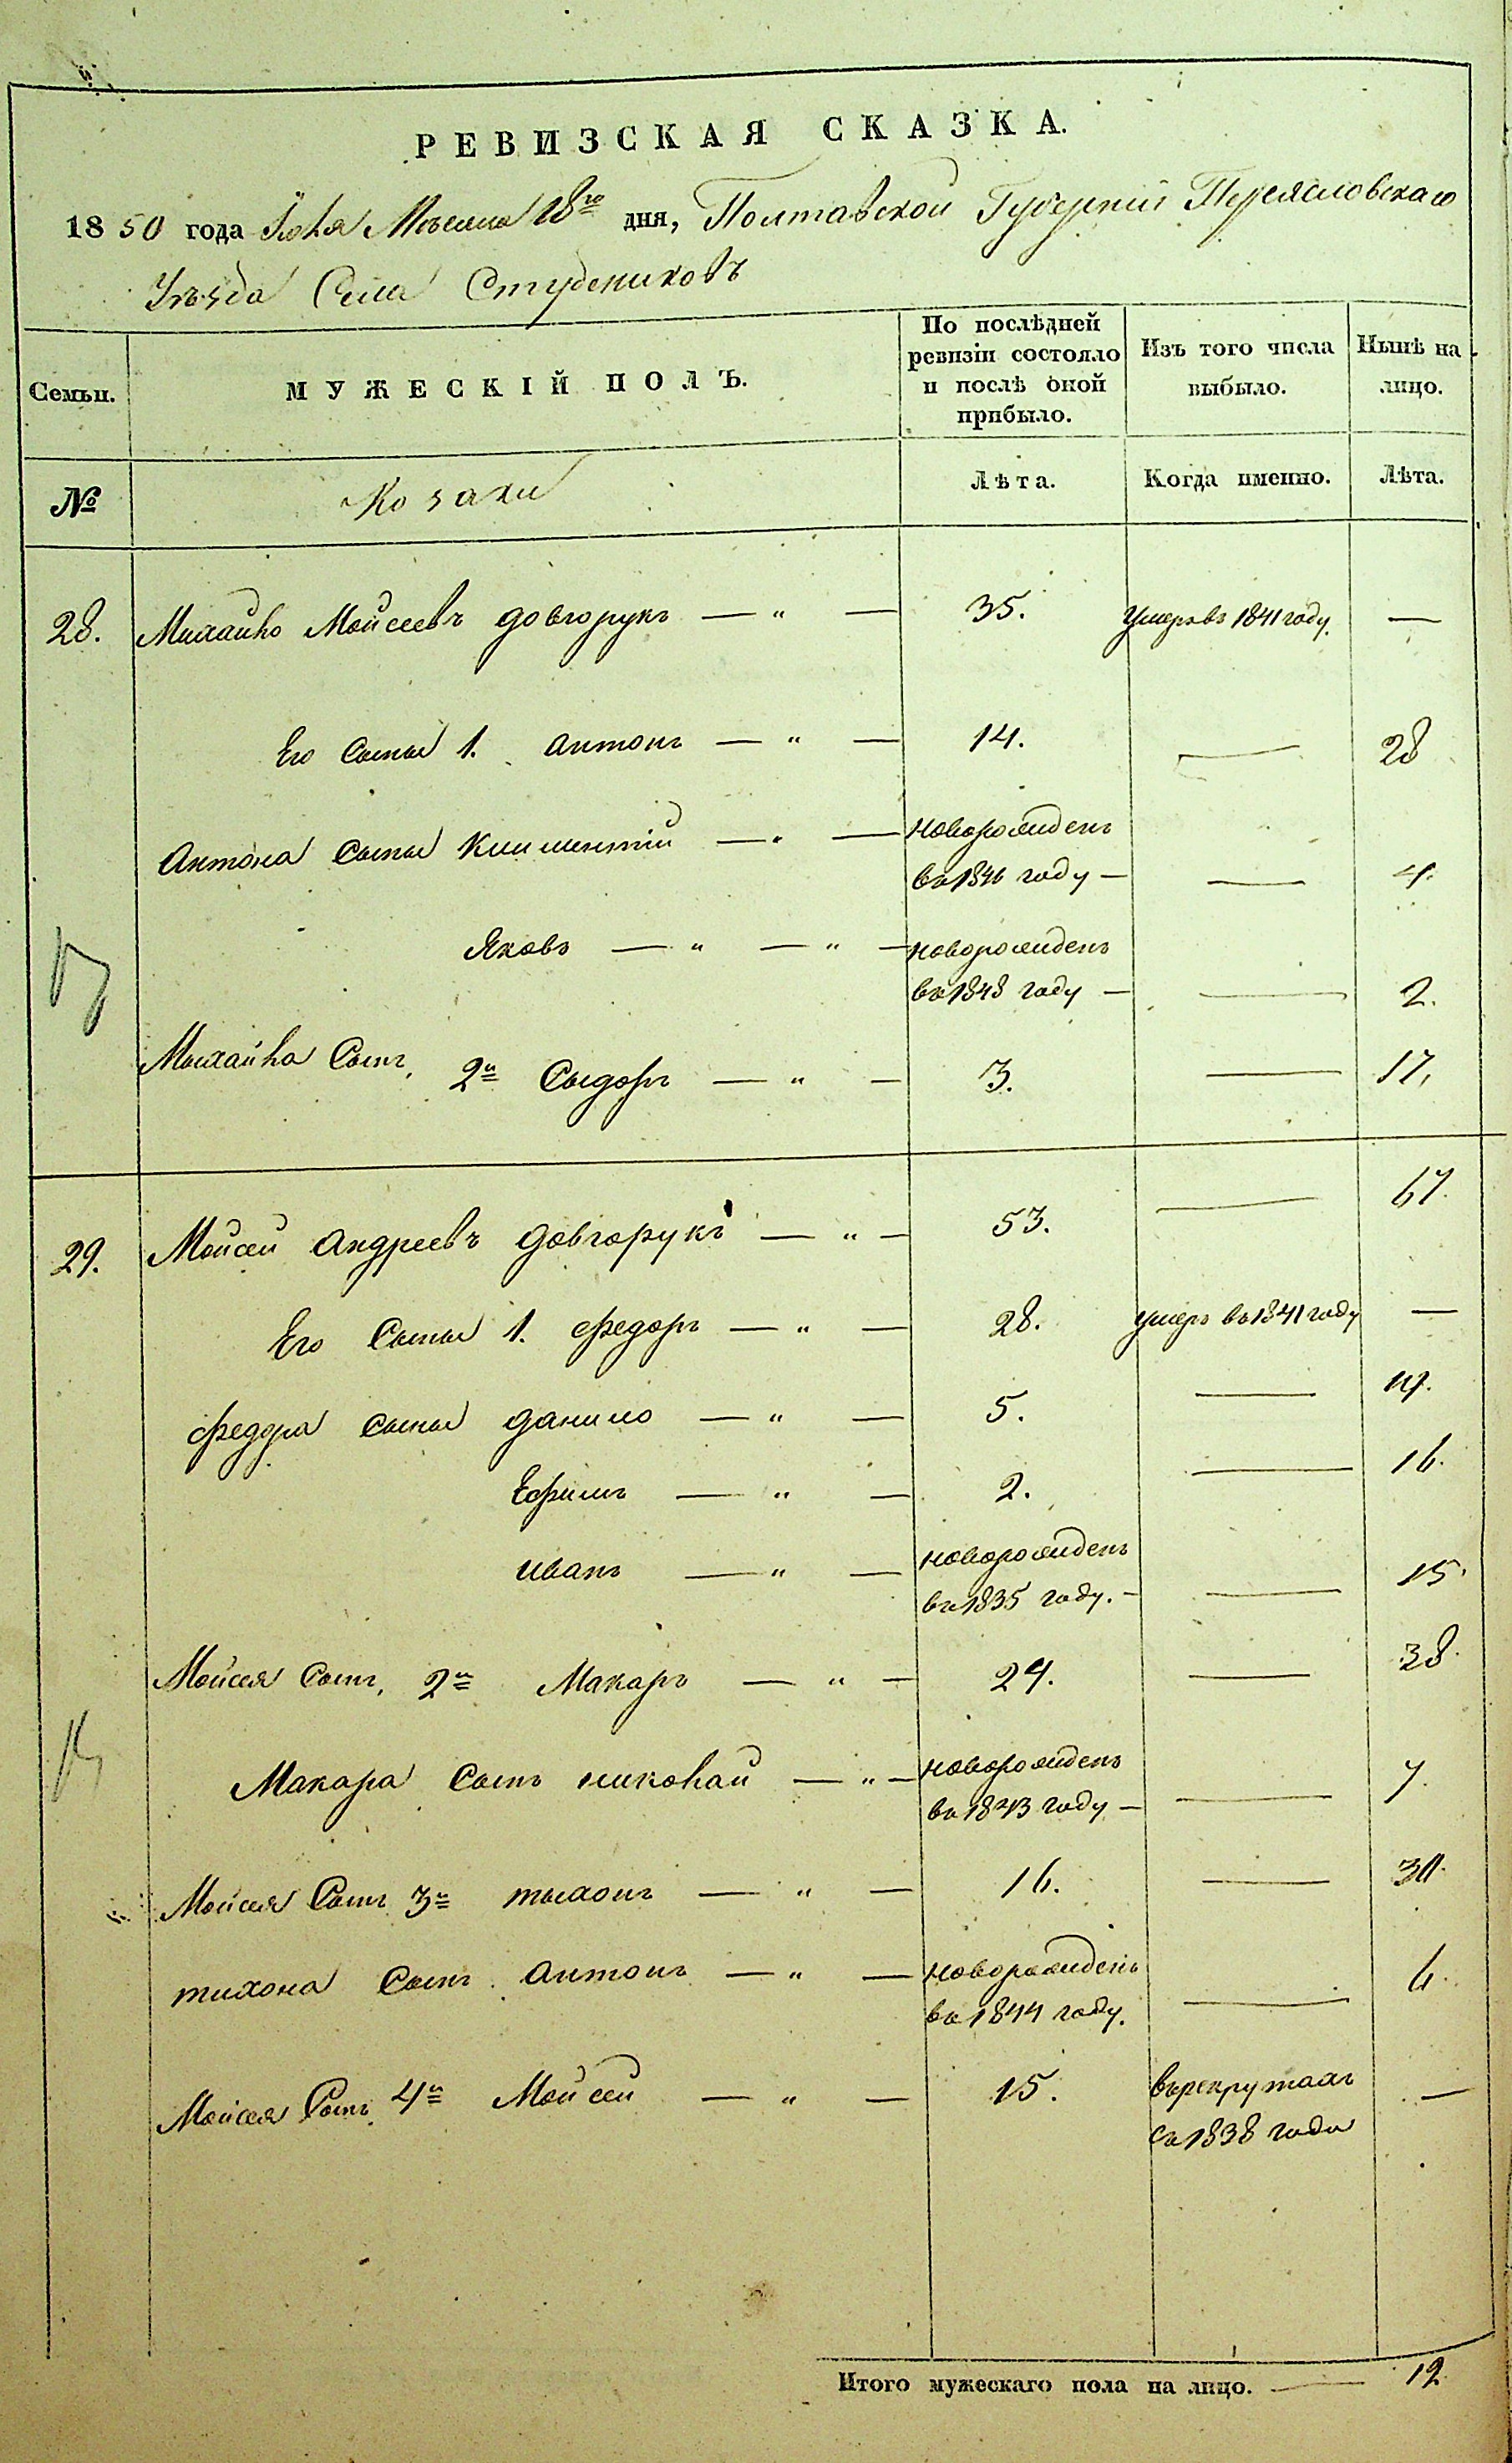 РЕВИЗСКАЯ СКАЗКА.
1850 года Июля Месяца 18го дня, Полтавской Губерній Переясловскаго
Уѣзда Села Студениковъ
Семьи. МУЖЕСКІЙ ПОЛЪ. По послѣдней ревизіи состояло и послѣ оной прибыло. Изъ того числа выбыло. Нынѣ на лицо.
№ Козаки Лѣта. Когда именно. Лѣта.
28. Михайло Мойсеевъ довгорукъ — " — 35. Умеръ въ 1841 году. —
Его Сыны 1. антонъ — " — 14. — 28
Антона Сыны Климентій — " — новорожденъ
въ 1846 году — — 4.
Яковъ — " — " — новорожденъ
въ 1848 году — — 2.
Михайла Сынъ, 2й Сыдоръ — " — 3. — 17.
29. Мойсей андреевъ довгорукъ — " — 53. — 67.
Его Сыны 1. федоръ — " — 28. умеръ въ 1841 году —
федора Сыны данило — " — 5. — 19.
Ефимъ — " — 2. — 16.
иванъ — " — новорожденъ
въ 1835 году. — — 15.
Мойсея Сынъ, 2й Макаръ — " — 24. — 38.
Макара Сынъ николай — " — новорожденъ
въ 1843 году — — 7.
Мойсея Сынъ 3й тыхонъ — " — 16. — 30.
тихона Сынъ антонъ — " — новорожденъ
въ 1844 году. — 6.
Мойсея Сынъ, 4й Мойсей — " — 15. въ рекрутахъ —
съ 1838 года
Итого мужескаго пола на лицо. — 12